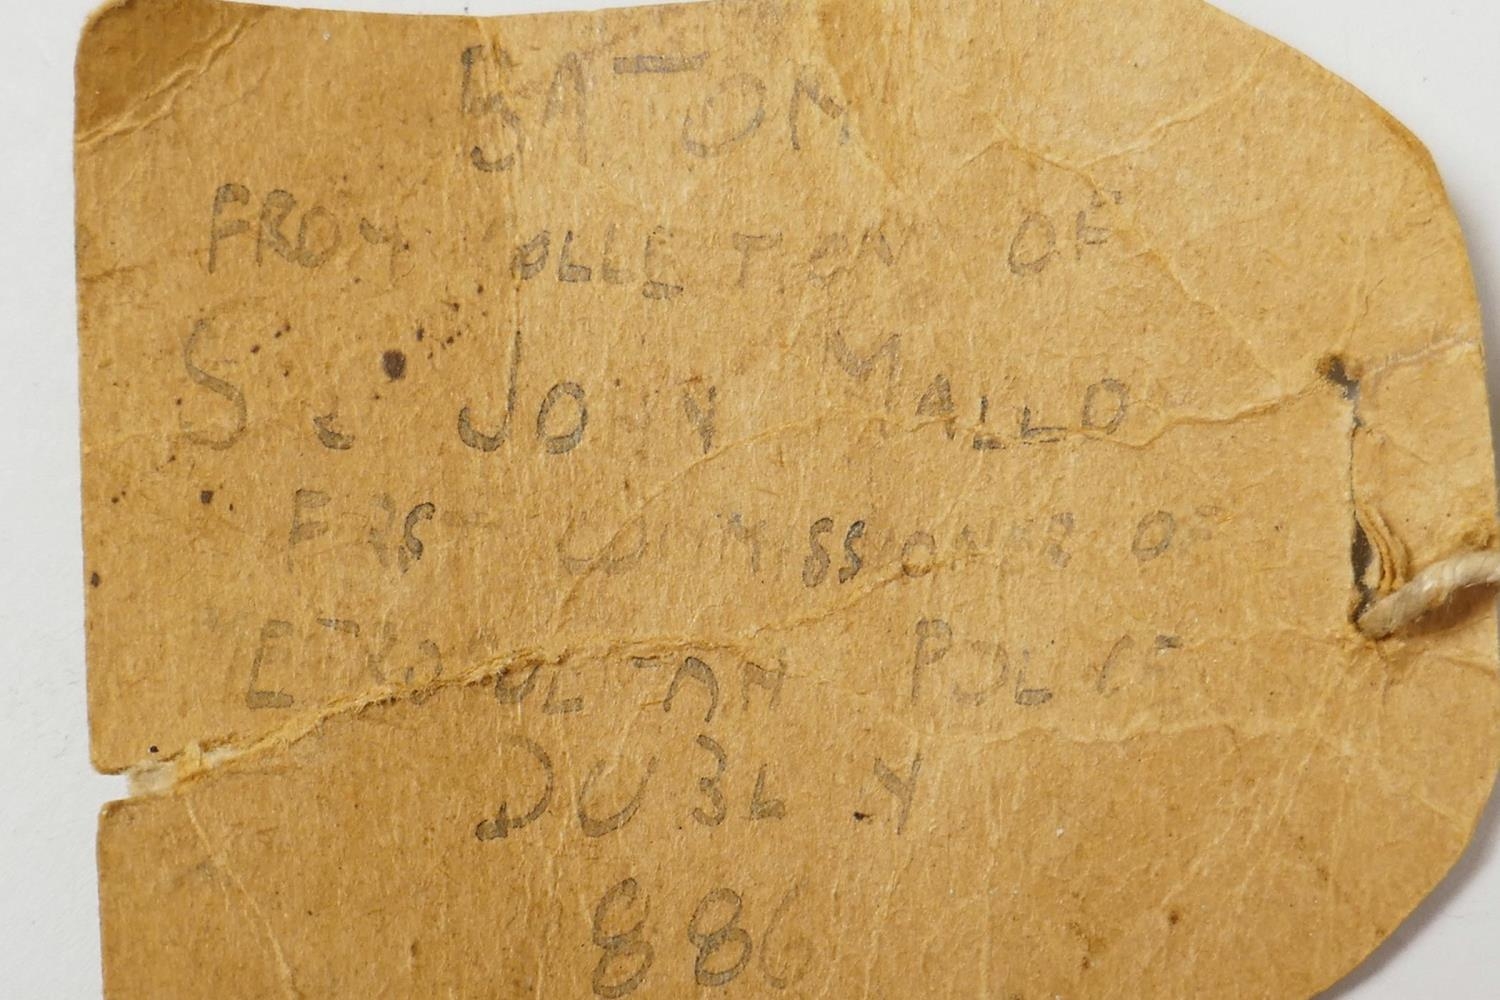 BATON
FROM COLLECTION OF
SIR JOHN MALLO
FIRST COMMISSIONER OF
METROPOLITAN POLICE
DUBLIN
886